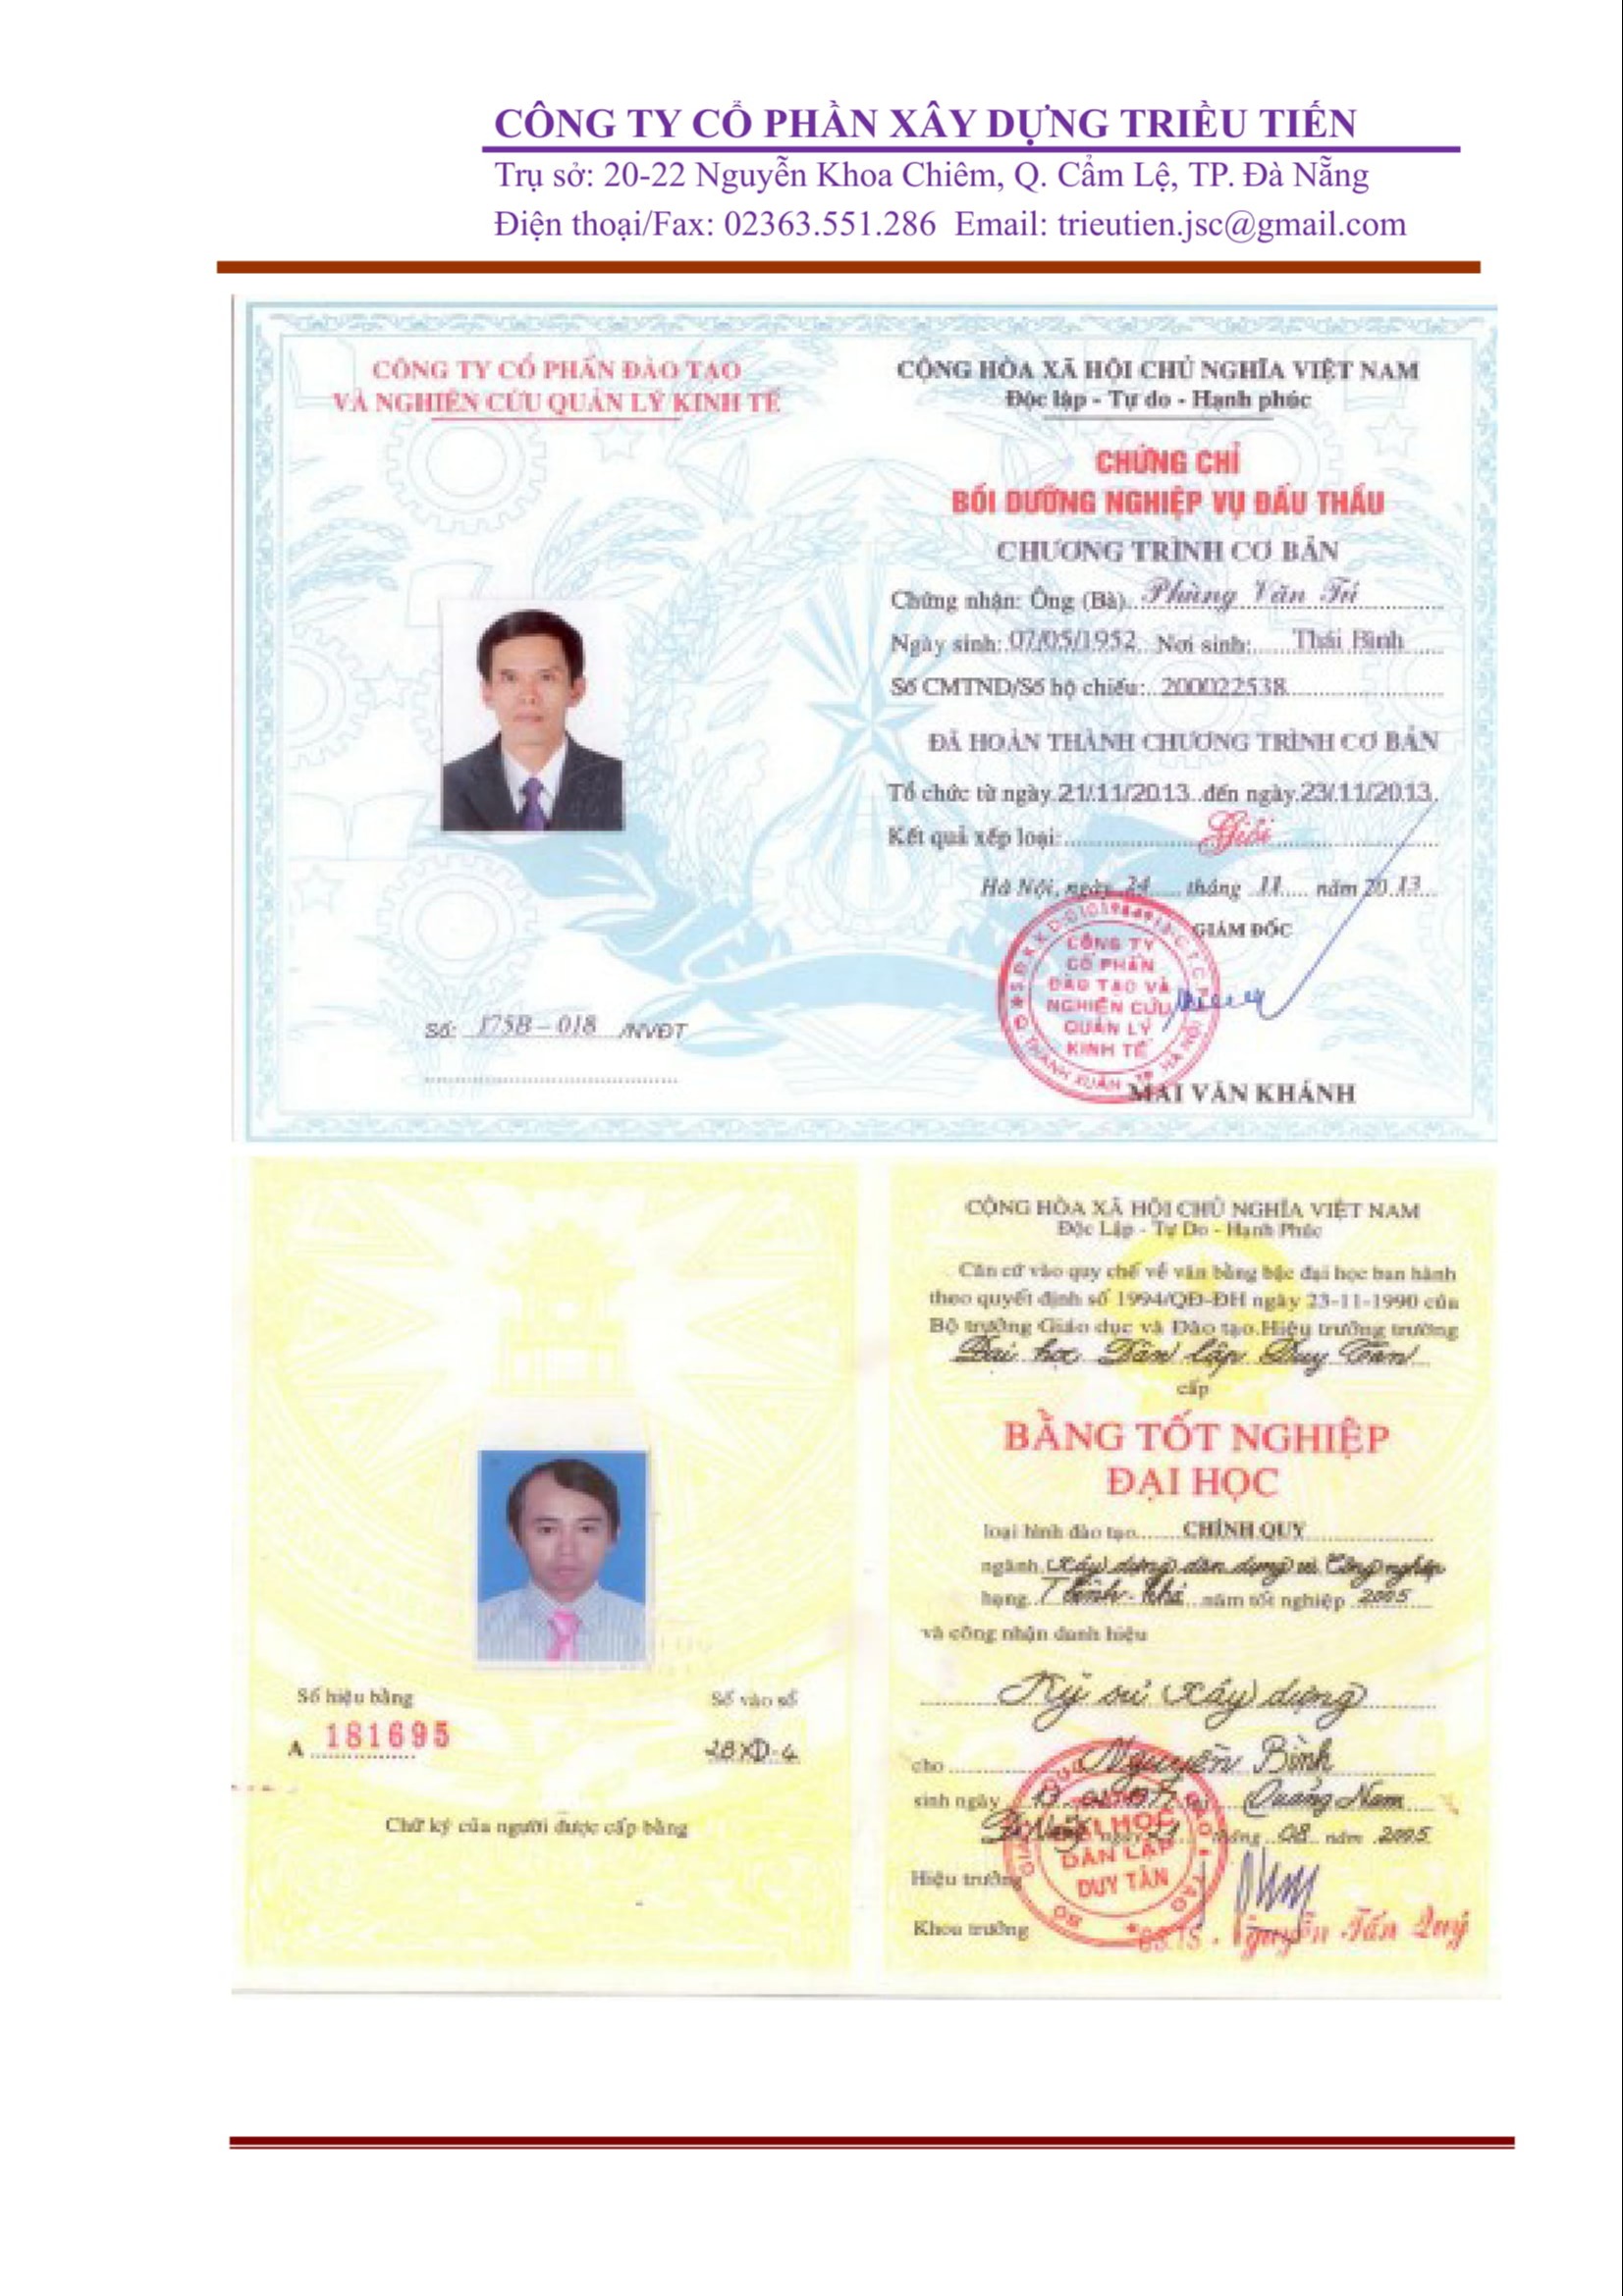 CÔNG TY CỔ PHẦN XÂY DỰNG TRIỀU TIẾN
Trụ sở: 20-22 Nguyễn Khoa Chiêm, Q. Cẩm Lệ, TP. Đà Nẵng
Điện thoại/Fax: 02363.551.286 Email: trieutien.jsc@gmail.com
CÔNG TY CỔ PHẦN ĐÀO TẠO
VÀ NGHIÊN CỨU QUẢN LÝ KINH TẾ
CỘNG HÒA XÃ HỘI CHỦ NGHĨA VIỆT NAM
Độc lập - Tự do - Hạnh phúc
CHỨNG CHỈ
BỒI DƯỠNG NGHIỆP VỤ ĐẤU THẦU
CHƯƠNG TRÌNH CƠ BẢN
Chứng nhận: Ông (Bà) Phùng Văn
Ngày sinh: 07/05/1952 Nơi sinh: Thái Bình
Số CMTND/Số hộ chiếu: 200022538
ĐÃ HOÀN THÀNH CHƯƠNG TRÌNH CƠ BẢN
Tổ chức từ ngày 21/11/2013 đến ngày 23/11/2013
Kết quả xếp loại: Giỏi
Hà Nội, ngày 24 tháng 11 năm 2013
GIÁM ĐỐC
CÔNG TY
CỔ PHẦN
ĐÀO TẠO VÀ
NGHIÊN CỨU
QUẢN LÝ
KINH TẾ
MAI VĂN KHÁNH
Số: 175B - 018 /NVĐT
CỘNG HÒA XÃ HỘI CHỦ NGHĨA VIỆT NAM
Độc Lập - Tự Do - Hạnh Phúc
Căn cứ vào quy chế về văn bằng bậc đại học ban hành
theo quyết định số 1994/QĐ-ĐH ngày 23-11-1990 của
Bộ trưởng Giáo dục và Đào tạo. Hiệu trưởng trường
Đại học Dân lập Duy Tân
cấp
BẰNG TỐT NGHIỆP
ĐẠI HỌC
loại hình đào tạo CHÍNH QUY
ngành Xây dựng dân dụng và Công nghiệp
hạng năm tốt nghiệp 2005
và công nhận danh hiệu
Kỹ sư Xây dựng
cho Nguyễn Bình
sinh ngày Quảng Nam
Đà Nẵng ngày tháng 08 năm 2005
Hiệu trưởng
Khoa trưởng
ĐẠI HỌC
DÂN LẬP
DUY TÂN
Nguyễn Tấn Quý
Số hiệu bằng
A 181695
Số vào sổ
28XD-4
Chữ ký của người được cấp bằng